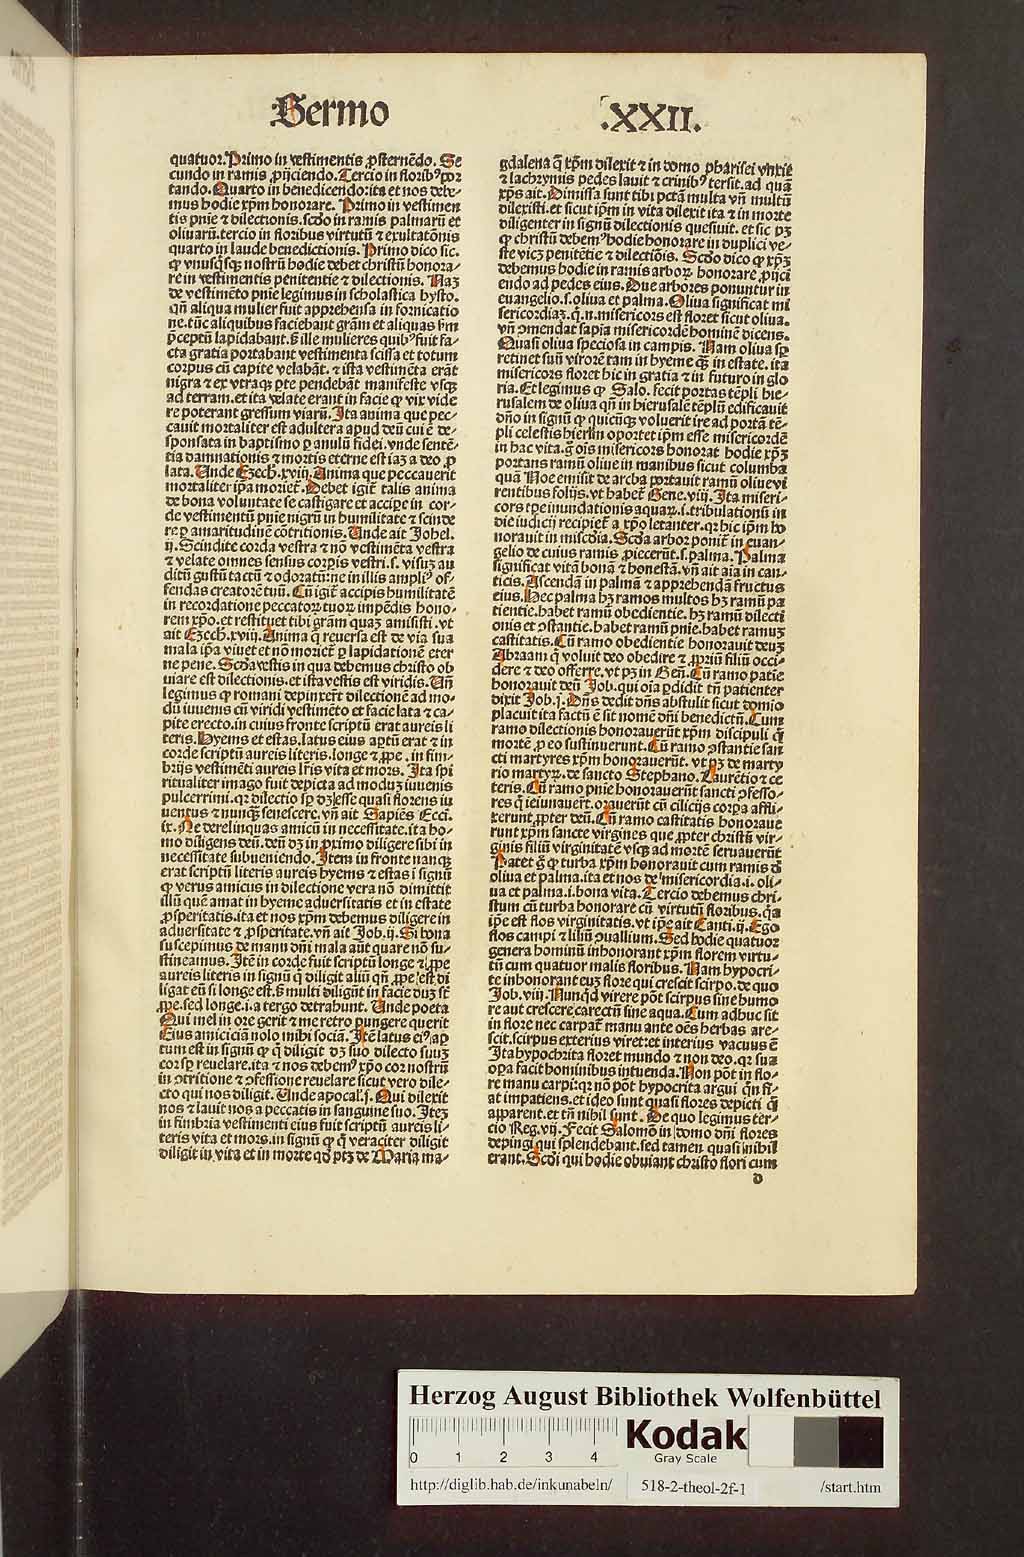 Sermo .XXII.
quatuor. Primo in vestimentis ꝓsternēdo. Se
cundo in ramis ꝓijciendo. Tercio in floribꝰ por
tando. Quarto in benedicendo: ita et nos debe-
mus hodie xp̄m honorare. Primo in vestimen
tis pnīe ⁊ dilectionis. scd̄o in ramis palmarū et
oliuarū. tercio in floribus virtutū ⁊ exultatōnis
quarto in laude benedictionis. Primo dico sic.
ꝙ vnusq̄sq; nostrū hodie debet christū honora-
re in vestimentis penitentie ⁊ dilectionis. Naꝫ
de vestimēto pnīe legimus in scholastica hysto.
qn̄ aliqua mulier fuit apprehensa in fornicatio
ne. tūc aliquibus faciebant grām et aliquas ẜm
p̄ceptū lapidabant. ẜ ille mulieres quibꝰ fuit fa-
cta gratia portabant vestimenta scissa et totum
corpus cū capite velabāt. ⁊ ista vestimēta erāt
nigra ⁊ ex vtraq; ꝑte pendebāt manifeste vsq;
ad terram. et ita velate erant in facie ꝙ vix vide
re poterant gressum viarū. Ita anima que pec-
cauit mortaliter est adultera apud deū cui ē de-
sponsata in baptismo ꝑ anulū fidei. vnde sentē-
tia damnationis ⁊ mortis eterne est iaꝫ a deo ꝓ
lata. Unde Ezech. xviij. Anima que peccauerit
mortaliter ip̄a morieť. Debet igiť talis anima
de bona voluntate se castigare et accipe in cor-
de vestimentū pnīe nigrū in humilitate ⁊ scinde
re ꝑ amaritudinē cōtritionis. Unde ait Johel.
ij. Scindite corda vestra ⁊ nō vestimēta vestra
⁊ velate omnes sensus corpis vestri. s. visuꝫ au
ditū gustū tactū ⁊ odoratū: ne in illis ampliꝰ of-
fendas creatorē tuū. Cū igiť accipis humilitatē
in recordatione peccatoꝝ tuoꝝ impēdis hono-
rem xp̄o. et restituet tibi grām quaꝫ amisisti. vt
ait Ezech. xviij. Anima q̄ reuersa est de via sua
mala ip̄a viuet et nō morieť ꝑ lapidationē eter
ne pene. Scd̄a vestis in qua debemus christo ob
uiare est dilectionis. et ista vestis est viridis. Un̄
legimus ꝙ romani depinxer̄t dilectionē ad mo-
dū iuuenis cū viridi vestimēto et facie lata ⁊ ca-
pite erecto. in cuius fronte scriptū erat aureis li
teris. Hyems et estas. latus eius aptū erat ⁊ in
corde scriptū aureis literis. longe ⁊ ꝓpe. in fim-
brijs vestimēti aureis lr̄is vita et mors. Ita spi
ritualiter imago fuit depicta ad moduꝫ iuuenis
pulcerrimi. qꝛ dilectio sꝑ dꝫ esse quasi florens iu
uentus ⁊ nunq̄ senescere. vn̄ ait Sapiēs Ecci.
ix. Ne derelinquas amicū in necessitate. ita ho-
mo diligens deū. deū dꝫ in primo diligere sibi in
necessitate subueniendo. Item in fronte nanq;
erat scriptū literis aureis hyems ⁊ estas ī signū
ꝙ verus amicus in dilectione vera nō dimittit
illū quē amat in hyeme aduersitatis et in estate
ꝓsperitatis. ita et nos xp̄m debemus diligere in
aduersitate ⁊ ꝓsperitate. vn̄ ait Job. ij. Si bona
suscepimus de manu dn̄i mala aūt quare nō su-
stineamus. Itē in corde fuit scriptū longe ⁊ ꝓpe
aureis literis in signū q̄ diligit aliū qn̄ ꝓpe est di
ligat eū si longe est. ẜ multi diligūt in facie duꝫ sē
ꝓpe. sed longe. i. a tergo detrabunt. Unde poeta
Qui mel in ore gerit ⁊ me retro pungere querit
Eius amiciciā nolo mihi sociā. Itē latus eiꝰ aꝑ
tum est in signū ꝙ q̄ diligit dꝫ suo dilecto suuꝫ
cor sꝑ reuelare. ita ⁊ nos debemꝰ xp̄o cor nostrū
in ꝯtritione ⁊ ꝯfessione reuelare sicut vero dile-
cto qui nos diligit. Unde apocal. j. Qui dilexit
nos ⁊ lauit nos a peccatis in sanguine suo. Iteꝫ
in fimbria vestimenti eius fuit scriptū aureis li-
teris vita et mors. in signū ꝙ q̄ veraciter diligit
diligit in vita et in morte qd̄ ptꝫ de Maria ma-
gdalena q̄ xp̄m dilexit ⁊ in domo pharisei vnxit
⁊ lachrymis pedes lauit ⁊ crinibꝰ tersit. ad quā
xp̄s ait. Dimissa sunt tibi pctā multa vn̄ multū
dilexisti. et sicut ip̄m in vita dilexit ita ⁊ in morte
diligenter in signū dilectionis quesiuit. et sic pꝫ
ꝙ christū debemꝰ hodie honorare in duplici ve-
ste vicꝫ penitētie ⁊ dilectiōis. Scd̄o dico ꝙ xp̄ꝫ
debemus hodie in ramis arboꝝ honorare ꝓijci
endo ad pedes eius. Due arbores ponuntur in
euangelio. s. oliua et palma. Oliua significat mi
sericordiaꝫ. q. n. misericors est floret sicut oliua.
vn̄ ꝯmendat sapīa misericordē hominē dicens.
Quasi oliua speciosa in campis. Nam oliua sꝑ
retinet suū virorē tam in hyeme q̄ꝫ in estate. ita
misericors floret hic in gratia ⁊ in futuro in glo
ria. Et legimus ꝙ Salo. fecit portas tēpli hie-
rusalem de oliua qn̄ in hierusalē tēplū edificauit
dn̄o in signū ꝙ quicūq; voluerit ire ad portā tē-
pli celestis hierlm̄ oportet ip̄m esse misericordē
in hac vita. ḡ oīs misericors honorat hodie xp̄ꝫ
portans ramū oliue in manibus sicut columba
quā Noe emisit de archa portauit ramū oliue vi
rentibus folijs. vt habeť Gene. viij. Ita miseri-
cors tꝑe inundationis aquaꝝ. i. tribulationū in
die iudicij recipieť a xp̄o letanter. qꝛ hic ip̄m ho
norauit in miscd̄ia. Scd̄a arbor poniť in euan-
gelio de cuius ramis ꝓiecerūt. s. palma. Palma
significat vitā bonā ⁊ honestā. vn̄ ait aīa in can-
ticis. Ascendā in palmā ⁊ apprehendā fructus
eius. Hec palma hꝫ ramos multos hꝫ ramū pa
tientie. habet ramū obedientie. hꝫ ramū dilecti
onis et ꝯstantie. habet ramū pnīe. habet ramuꝫ
castitatis. Cū ramo obedientie honorauit deuꝫ
Abraam q̄ voluit deo obedire ⁊ ꝓpriū filiū occi-
dere ⁊ deo offerre. vt pꝫ in Geñ. Cū ramo patiē
honorauit deū Job. qui oīa ꝑdidit tn̄ patienter
dixit Job. j. Dn̄s dedit dn̄s abstulit sicut domīo
placuit ita factū ē sit nomē dn̄i benedictū. Cum
ramo dilectionis honorauerūt xp̄m discipuli q̄
mortē ꝓ eo sustinuerunt. Cū ramo ꝯstantie san
cti martyres xp̄m honorauerūt. vt pꝫ de marty
rio martyꝝ. de sancto Stephano. Laurētio ⁊ ce
teris. Cū ramo pnīe honorauerūt sancti ꝯfesso-
res q̄ ieiunauer̄t. orauerūt cū cilicijs corꝑa affli-
xerunt ꝓpter deū. Cū ramo castitatis honoraue
runt xp̄m sancte virgines que ꝓpter christū vir-
ginis filiū virginitatē vsq; ad mortē seruauerūt
Patet ḡ ꝙ turba xp̄m honorauit cum ramis d̄
oliua et palma. ita et nos de misericordia. i. oli-
ua et palma. i. bona vita. Tercio debemus chri-
stum cū turba honorare cū virtutū floribus. q̄a
ip̄e est flos virginitatis. vt ip̄e ait Canti. ij. Ego
flos campi ⁊ liliū ꝯuallium. Sed hodie quatuor
genera hominū inhonorant xp̄m florem virtu-
tū cum quatuor malis floribus. Nam hypocri-
te inhonorant euꝫ flore qui crescit scirpo. de quo
Job. viij. Nunqd̄ virere pōt scirpus sine humo
re aut crescere carectū sine aqua. Cum adhuc sit
in flore nec carpať manu ante oēs herbas are-
scit. scirpus exterius viret: et interius vacuus ē
Ita hypochrita floret mundo ⁊ non deo. qꝛ sua
oꝑa facit hominibus intuenda. Non pōt in flo-
re manu carpi: qꝛ nō pōt hypocrita argui qn̄ fi-
at impatiens. et ideo sunt quasi flores depicti q̄
apparent. et tn̄ nihil sunt. De quo legimus ter-
cio Reg. vij. Fecit Salomō in domo dn̄i flores
depingi qui splendebant. sed tamen quasi inihil
erant. Scd̄i qui hodie obuiant christo flori cum
d
Herzog August Bibliothek Wolfenbüttel
0 1 2 3 4
Kodak
Gray Scale
http://diglib.hab.de/inkunabeln/ 518-2-theol-2f-1 /start.htm